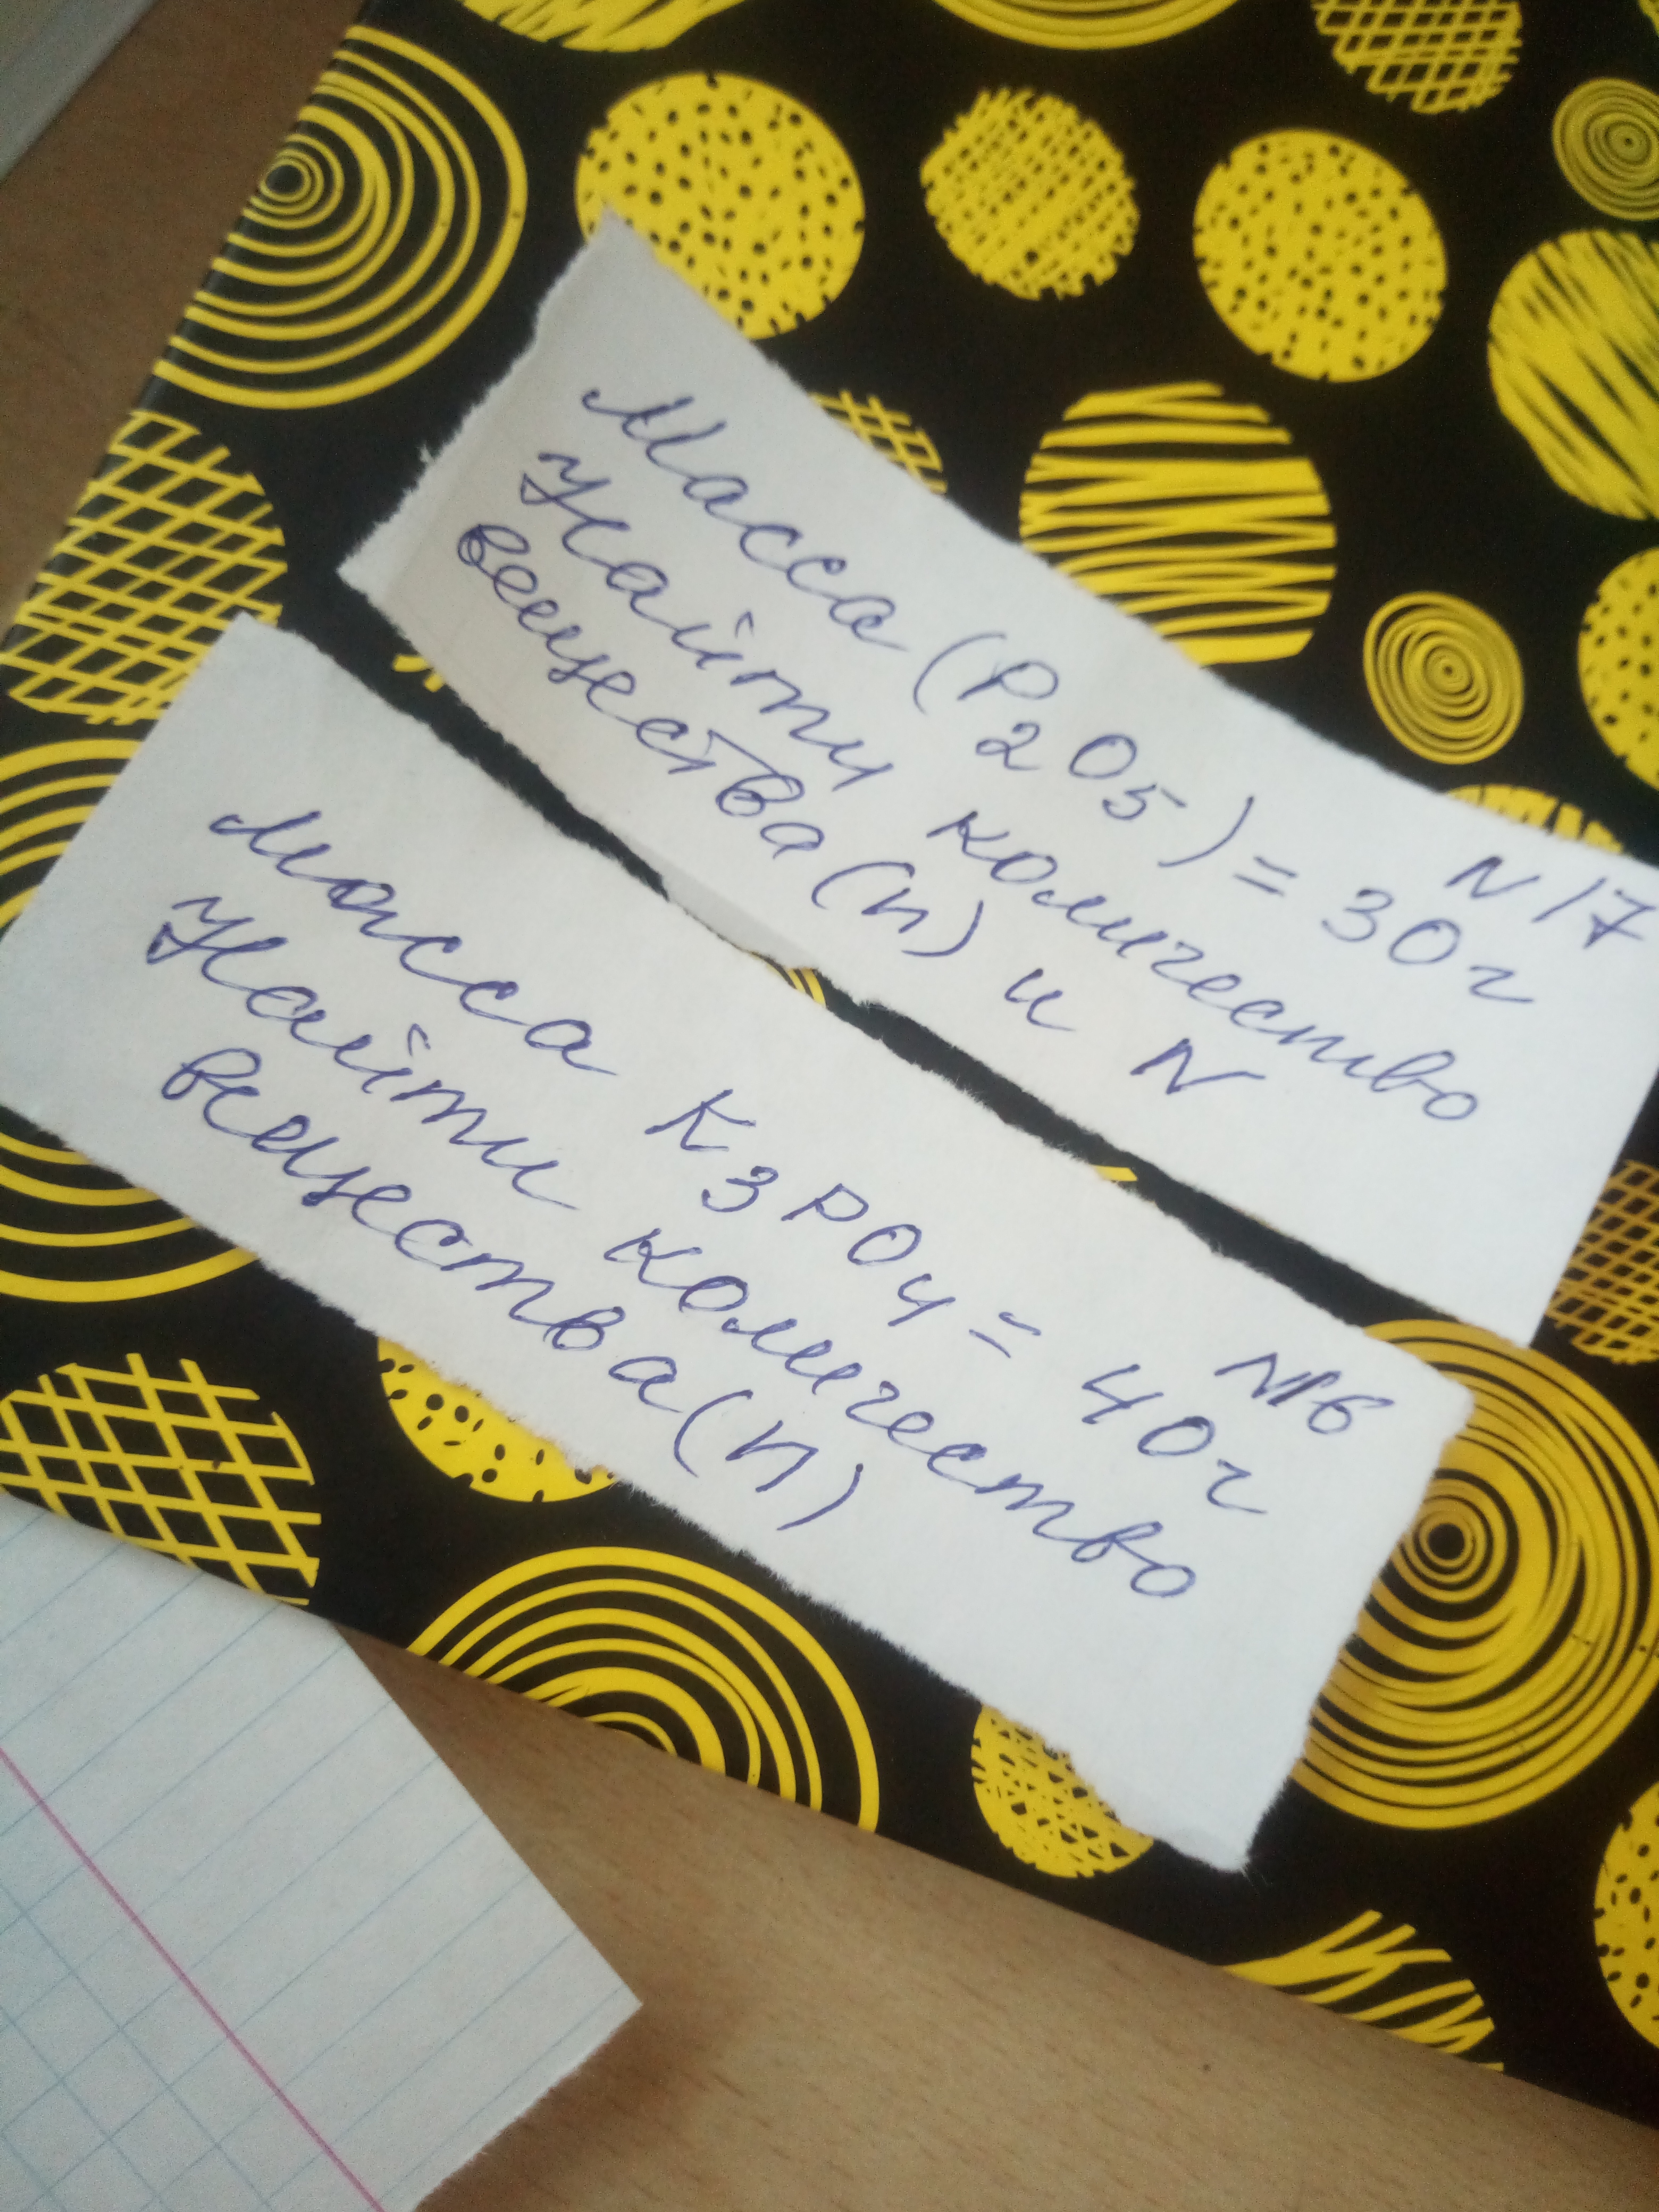 N17
Масса (P2O5) = 30г
Найти количество
вещества (n) и N
N16
Масса K3PO4 = 40г
Найти количество
вещества (n)